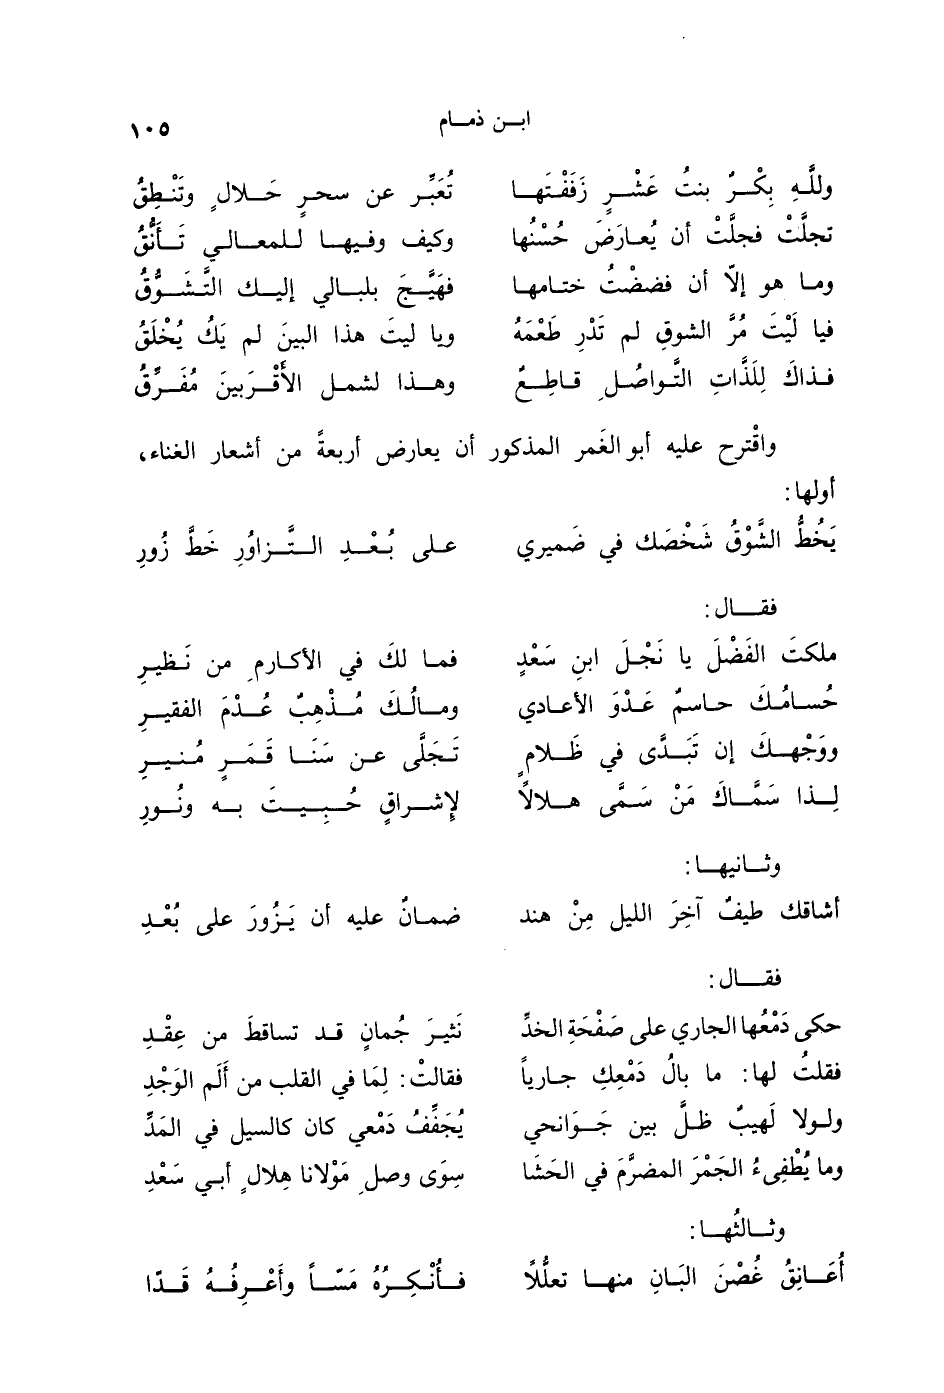 ابن ذمام ١٠٥
وللَّهِ بِكْرٌ بنتُ عَشْرٍ زَفَفْتَها تُعَبِّر عن سحرٍ حَلالٍ وتَنْطِقُ
تجلَّتْ فجلَّتْ أن يُعارَضَ حُسْنُها وكيف وفيها للمعالي تَأَنُّقُ
وما هو إلاّ أن فضضْتُ ختامها فهَيَّجَ بلبالي إليك التَّشَوُّقُ
فيا لَيْتَ مُرَّ الشوقِ لم تَدْرِ طَعْمَهُ ويا ليتَ هذا البينَ لم يَكُ يُخْلَقُ
فذاكَ لِلَذَّاتِ التَّواصُلِ قاطِعٌ وهذا لشمل الأَقْرَبينَ مُفَرِّقُ
واقْترح عليه أبو الغَمر المذكور أن يعارض أربعةً من أشعار الغناء،
أولها:
يَخُطُّ الشَّوْقُ شَخْصَك في ضَميري على بُعْدِ التَّزاوُرِ خَطَّ زُورِ
فقال:
ملكتَ الفَضْلَ يا نَجْلَ ابنِ سَعْدٍ فما لكَ في الأكارمِ من نَظيرِ
حُسامُكَ حاسمٌ عَدْوَ الأعادي ومالُكَ مُذْهِبٌ عُدْمَ الفقيرِ
ووَجْهكَ إن تَبَدَّى في ظَلامٍ تَجَلَّى عن سَنَا قَمَرٍ مُنيرِ
لذا سَمَّاكَ مَنْ سَمَّى هلالاً لإشراقٍ حُبِيتَ به ونُورِ
وثانيها:
أشاقك طيفٌ آخِرَ الليل مِنْ هند ضمانٌ عليه أن يَزُورَ على بُعْدِ
فقال:
حكى دَمْعُها الجاري على صَفْحَةِ الخدِّ نَثيرَ جُمانٍ قد تساقطَ من عِقْدِ
فقلتُ لها: ما بالُ دَمْعِكِ جارياً فقالتْ: لِمَا في القلب من أَلَم الوَجْدِ
ولولا لَهيبٌ ظلَّ بين جَوَانحي يُجَفِّفُ دَمْعي كان كالسيل في المَدِّ
وما يُطْفِىءُ الجَمْرَ المضرَّمَ في الحَشَا سِوَى وصلِ مَوْلانا هِلالٍ أبي سَعْدِ
وثالثُها:
أُعَانِقُ غُصْنَ البَانِ منها تعلُّلاً فأُنْكِرُهُ مَسّاً وأَعْرِفُهُ قَدّا